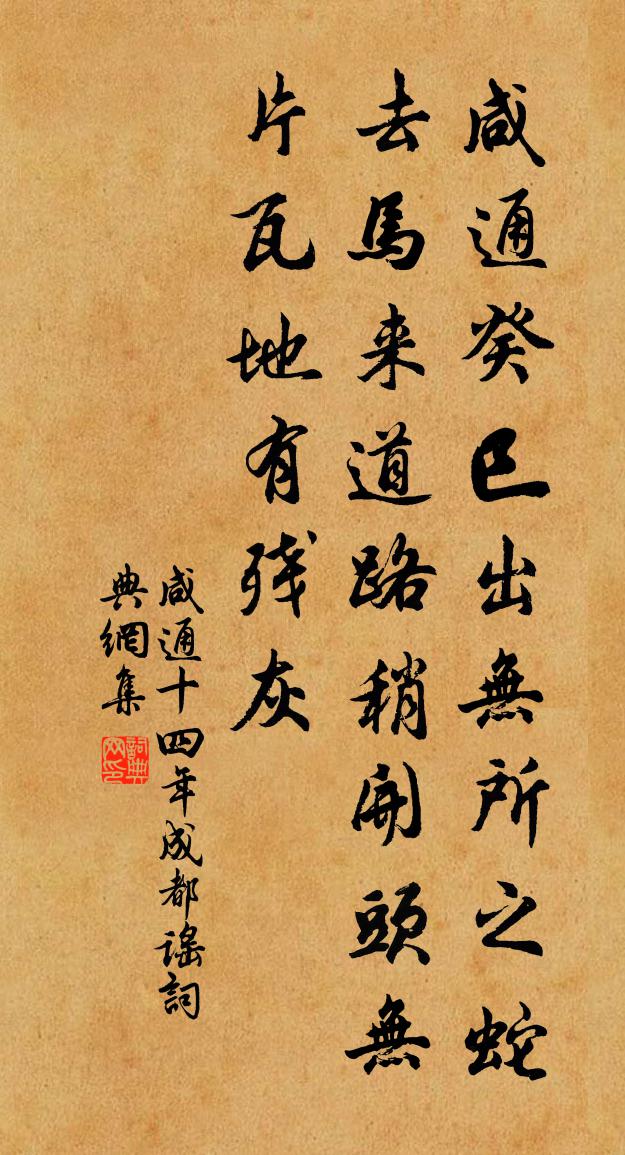 咸通癸巳出無所之蛇
去馬来道路稍開頭無
片瓦地有残灰
咸通十四年成都谣詞
典網集
詞典網印